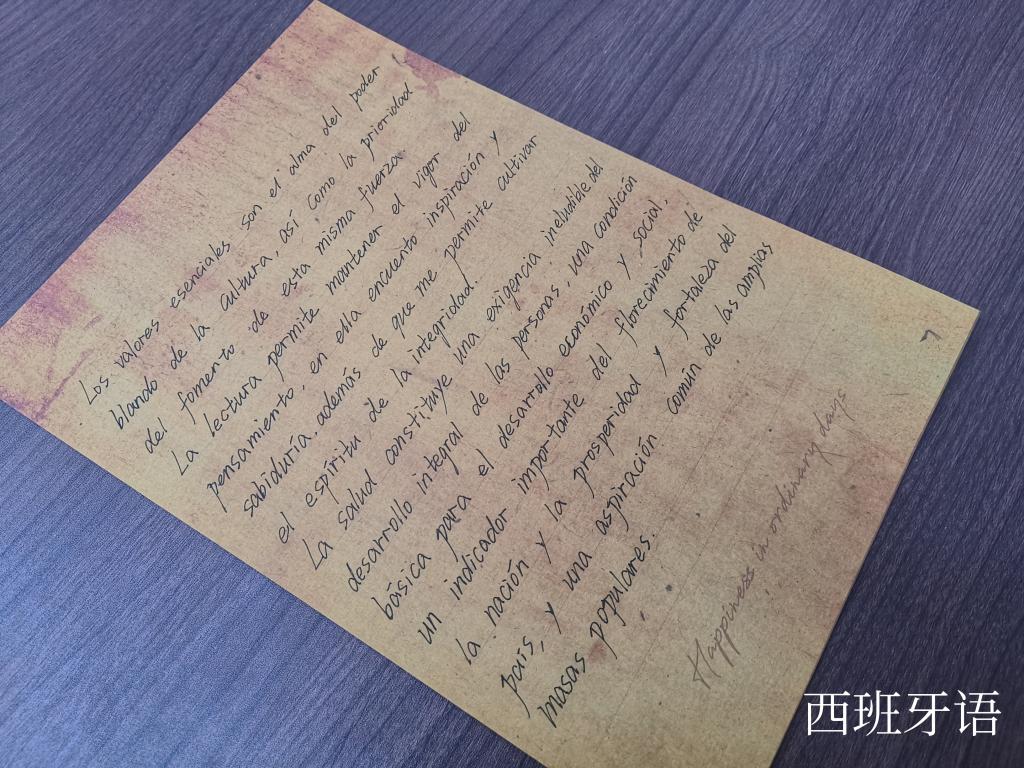 Los valores esenciales son el alma del poder
blando de la cultura, así como la prioridad
del fomento de esta misma fuerza.
La lectura permite mantener el vigor del
pensamiento, en ella encuentro inspiración y
sabiduría, además de que me permite cultivar
el espíritu de la integridad.
La salud constituye una exigencia ineludible del
desarrollo integral de las personas, una condición
básica para el desarrollo económico y social,
un indicador importante del florecimiento de
la nación y la prosperidad y fortaleza del
país, y una aspiración común de las amplias
masas populares.
Happiness in ordinary days
西班牙语